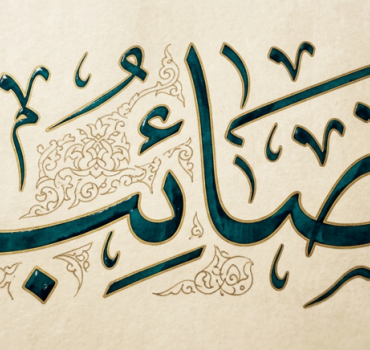 صَائِبُ